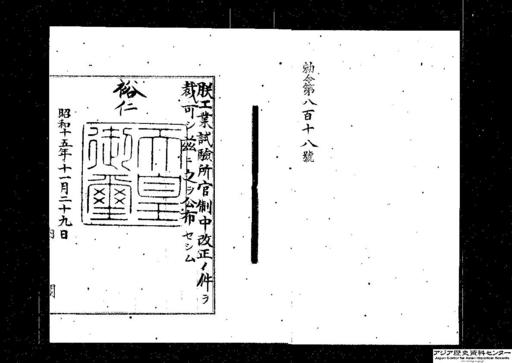 勅令第八百十八號
朕工業試驗所官制中改正ノ件ヲ
裁可シ茲ニ之ヲ公布セシム
裕仁
天皇御璽
昭和十五年十一月二十九日
内閣
アジア歴史資料センター
Japan Center for Asian Historical Records